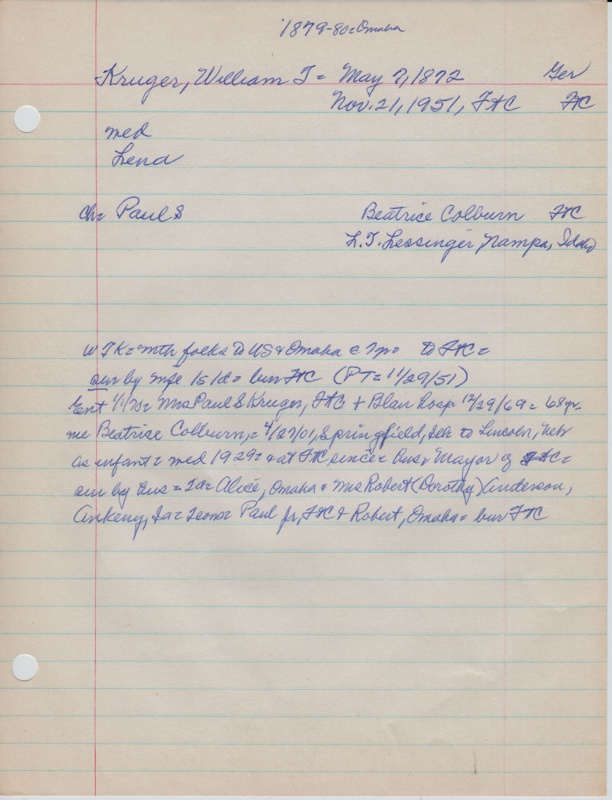 1879-80= Omaha
Kruger, William T= May 7, 1872 Ger
Nov. 21, 1951, FtC FtC
med
Lena
ch= Paul S Beatrice Colburn FtC
L.T. Lessinger, Nampa, Idaho
WTK= with folks to US & Omaha @ 7yo= to FtC=
sur by wife 1s 1d= bur FtC (PT= 11/29/51)
Ent 1/1/70= Mrs Paul S Kruger, FtC + Blair Hosp 12/29/69= 68yrs
nee Beatrice Colburn,= 4/27/01, Springfield, to Lincoln, Neb
as infant= med 1929= & at FtC since= Hus, Mayor of FtC=
sur by Hus= 2d= Alice, Omaha & Mrs Robert (Dorothy) Anderson,
Ankeny, Ia= Paul Jr, FtC & Robert, Omaha= bur FtC